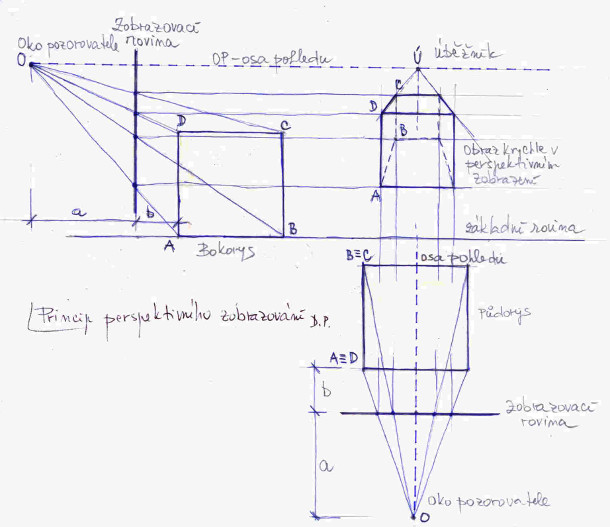 Zobrazovací
rovina
Oko pozorovatele
O
OP-osa pohledu
Ú
Úběžník
D
C
C
D
B
Obraz krychle v
perspektivním
zobrazení
A
a
b
A
B
Bokorys
základní rovina
B≡C
osa pohledu
Princip perspektivního zobrazování D.P.
Půdorys
A≡D
b
Zobrazovací
rovina
a
Oko pozorovatele
O